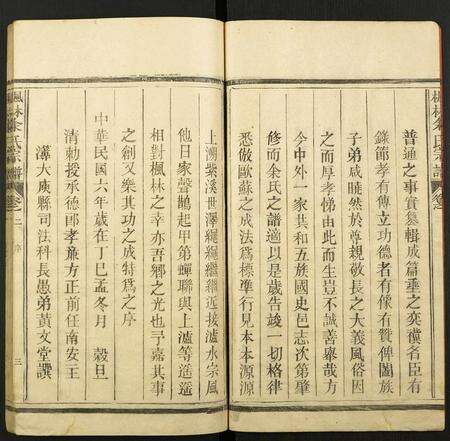 楓林余氏宗譜
卷之
普通之事實纂輯成篇垂之奕禩名臣有
錄節孝有傳立功德者有像有贊俾闔族
子弟咸曉然於尊親敬長之大義風俗因
之而厚孝悌由此而生豈不誠善舉哉方
今中外一家共和五族國史邑志次第肇
修而余氏之譜適以是歲告竣一切格律
悉倣歐蘇之成法為標準行見本本源源
上溯紫溪世澤繩繩繼繼近接瀘水宗風
他日家聲鵲起甲第蟬聯與上瀘等遙遙
相對楓林之幸亦吾鄉之光也予嘉其事
之創又樂其功之成特為之序
中華民國六年歲在丁巳孟冬月 穀旦
清勅授承德郎孝廉方正前任南安
溥大庾縣司法科長愚弟黃文堂譔
楓林余氏宗譜
卷之一
序
三